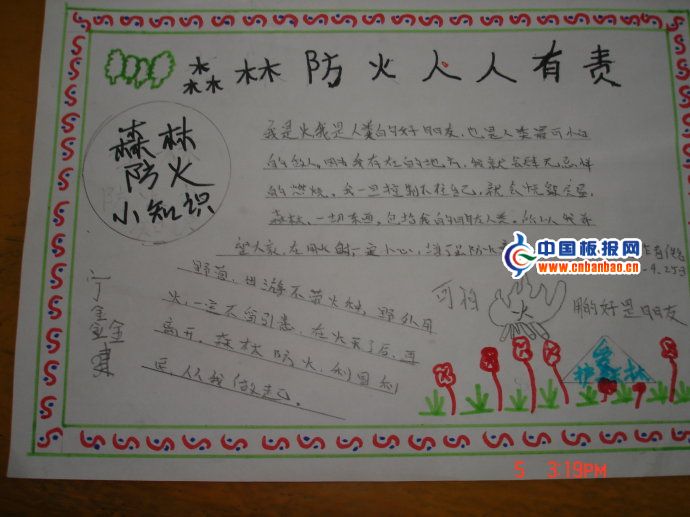 森林防火人人有责
森林
防火
小知识
我是火我是人类的好朋友,也是人类最可怕
的敌人。因为我存在的地方,我就会肆无忌惮
的燃烧。我一旦控制不住自己,就会
森林、一切东西,包括我的朋友人类。所以我希
望大家,在用火的一定小心,
中国板报网
www.cnbanbao.cn
野营、出游不带火种,野外用
火,一定不留引患,在火灭了后,再
离开。森林防火,利国利
民,从我做起。
可怕
火
用的好是朋友
5 3:19PM